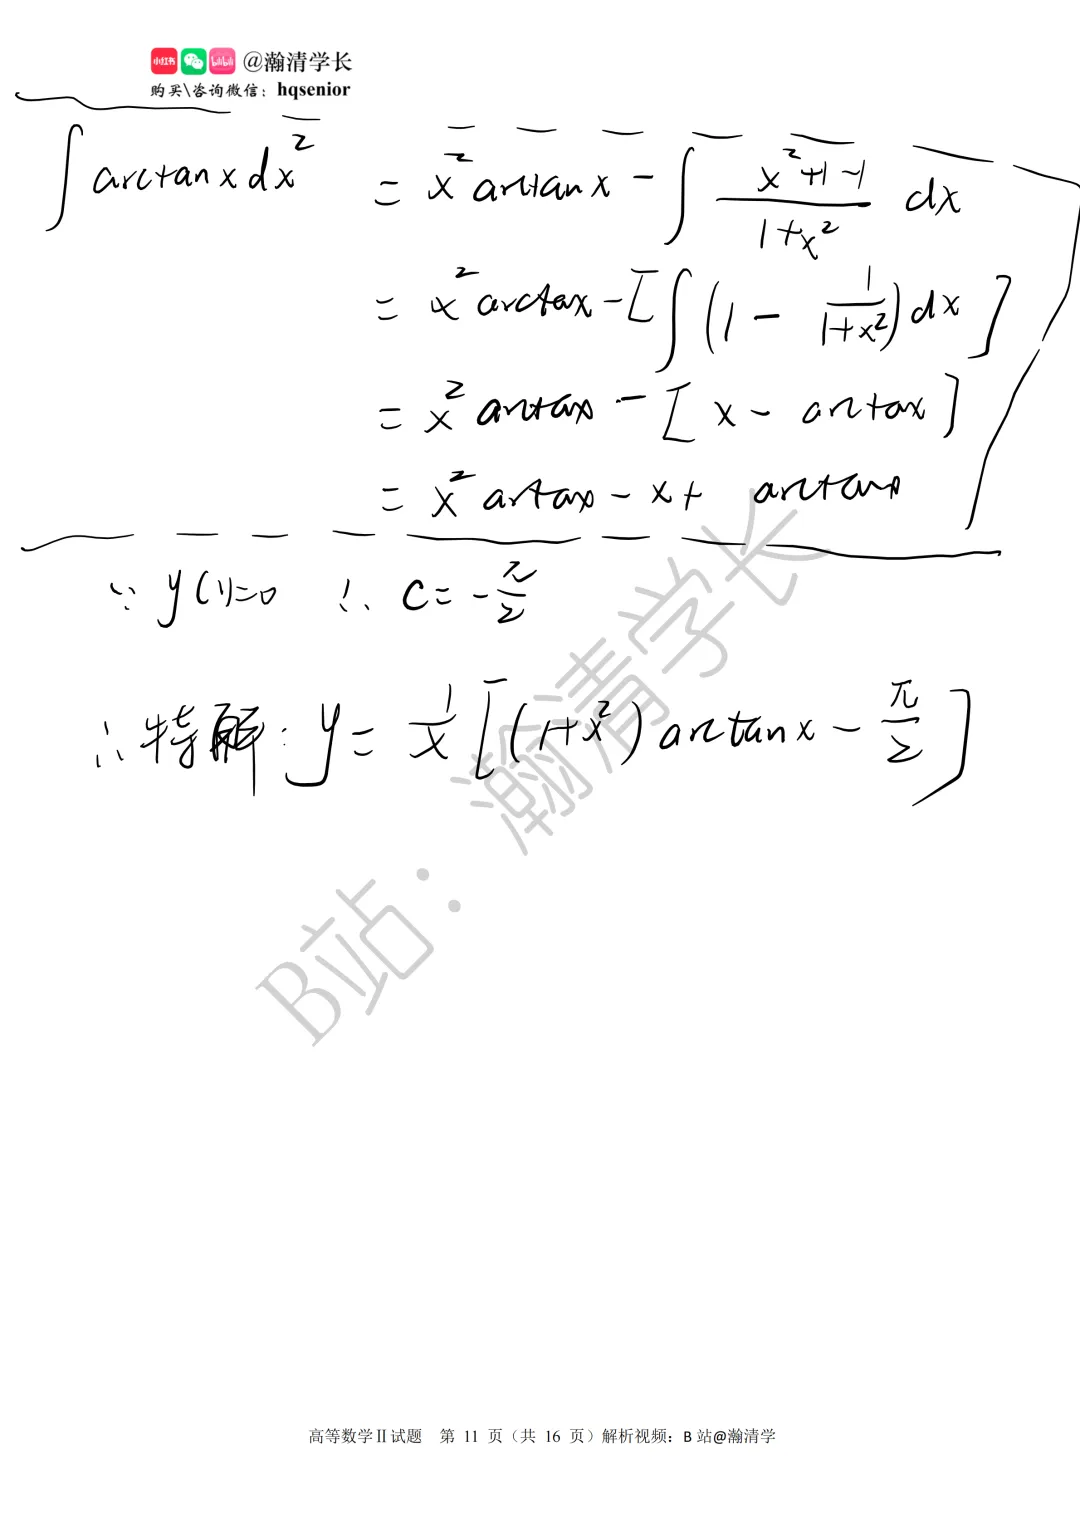 小红书 bilibili @瀚清学长
购买\咨询微信：hqsenior
∫ arctan x dx² = x² arctan x - ∫ (x²+1-1)/(1+x²) dx
= x² arctax - [∫(1 - 1/(1+x²)) dx]
= x² arctax - [x - arctax]
= x² artax - x + arctanx
∵ y(1)=0 ∴ C = -π/2
∴ 特解: y = 1/x [(1+x²) arctan x - π/2]
B站：瀚清学长
高等数学Ⅱ试题 第 11 页（共 16 页）解析视频：B 站@瀚清学